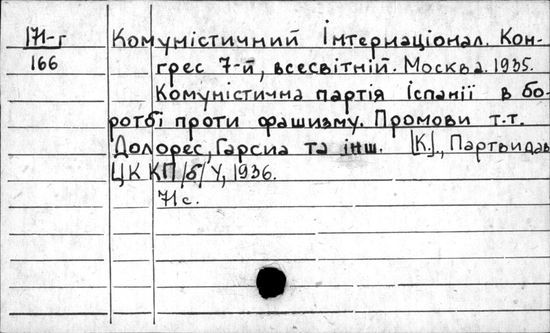 171-г
166
Комуністичний Інтернаціонал. Кон-
грес 7-й, всесвітній. Москва. 1935.
Комуністична партія Іспанії в бо-
ротбі проти фашизму. Промови т.т.
Долорес, Гарсиа та інш. [К.]., Партвидав
ЦК КП/б/У, 1936.
71с.